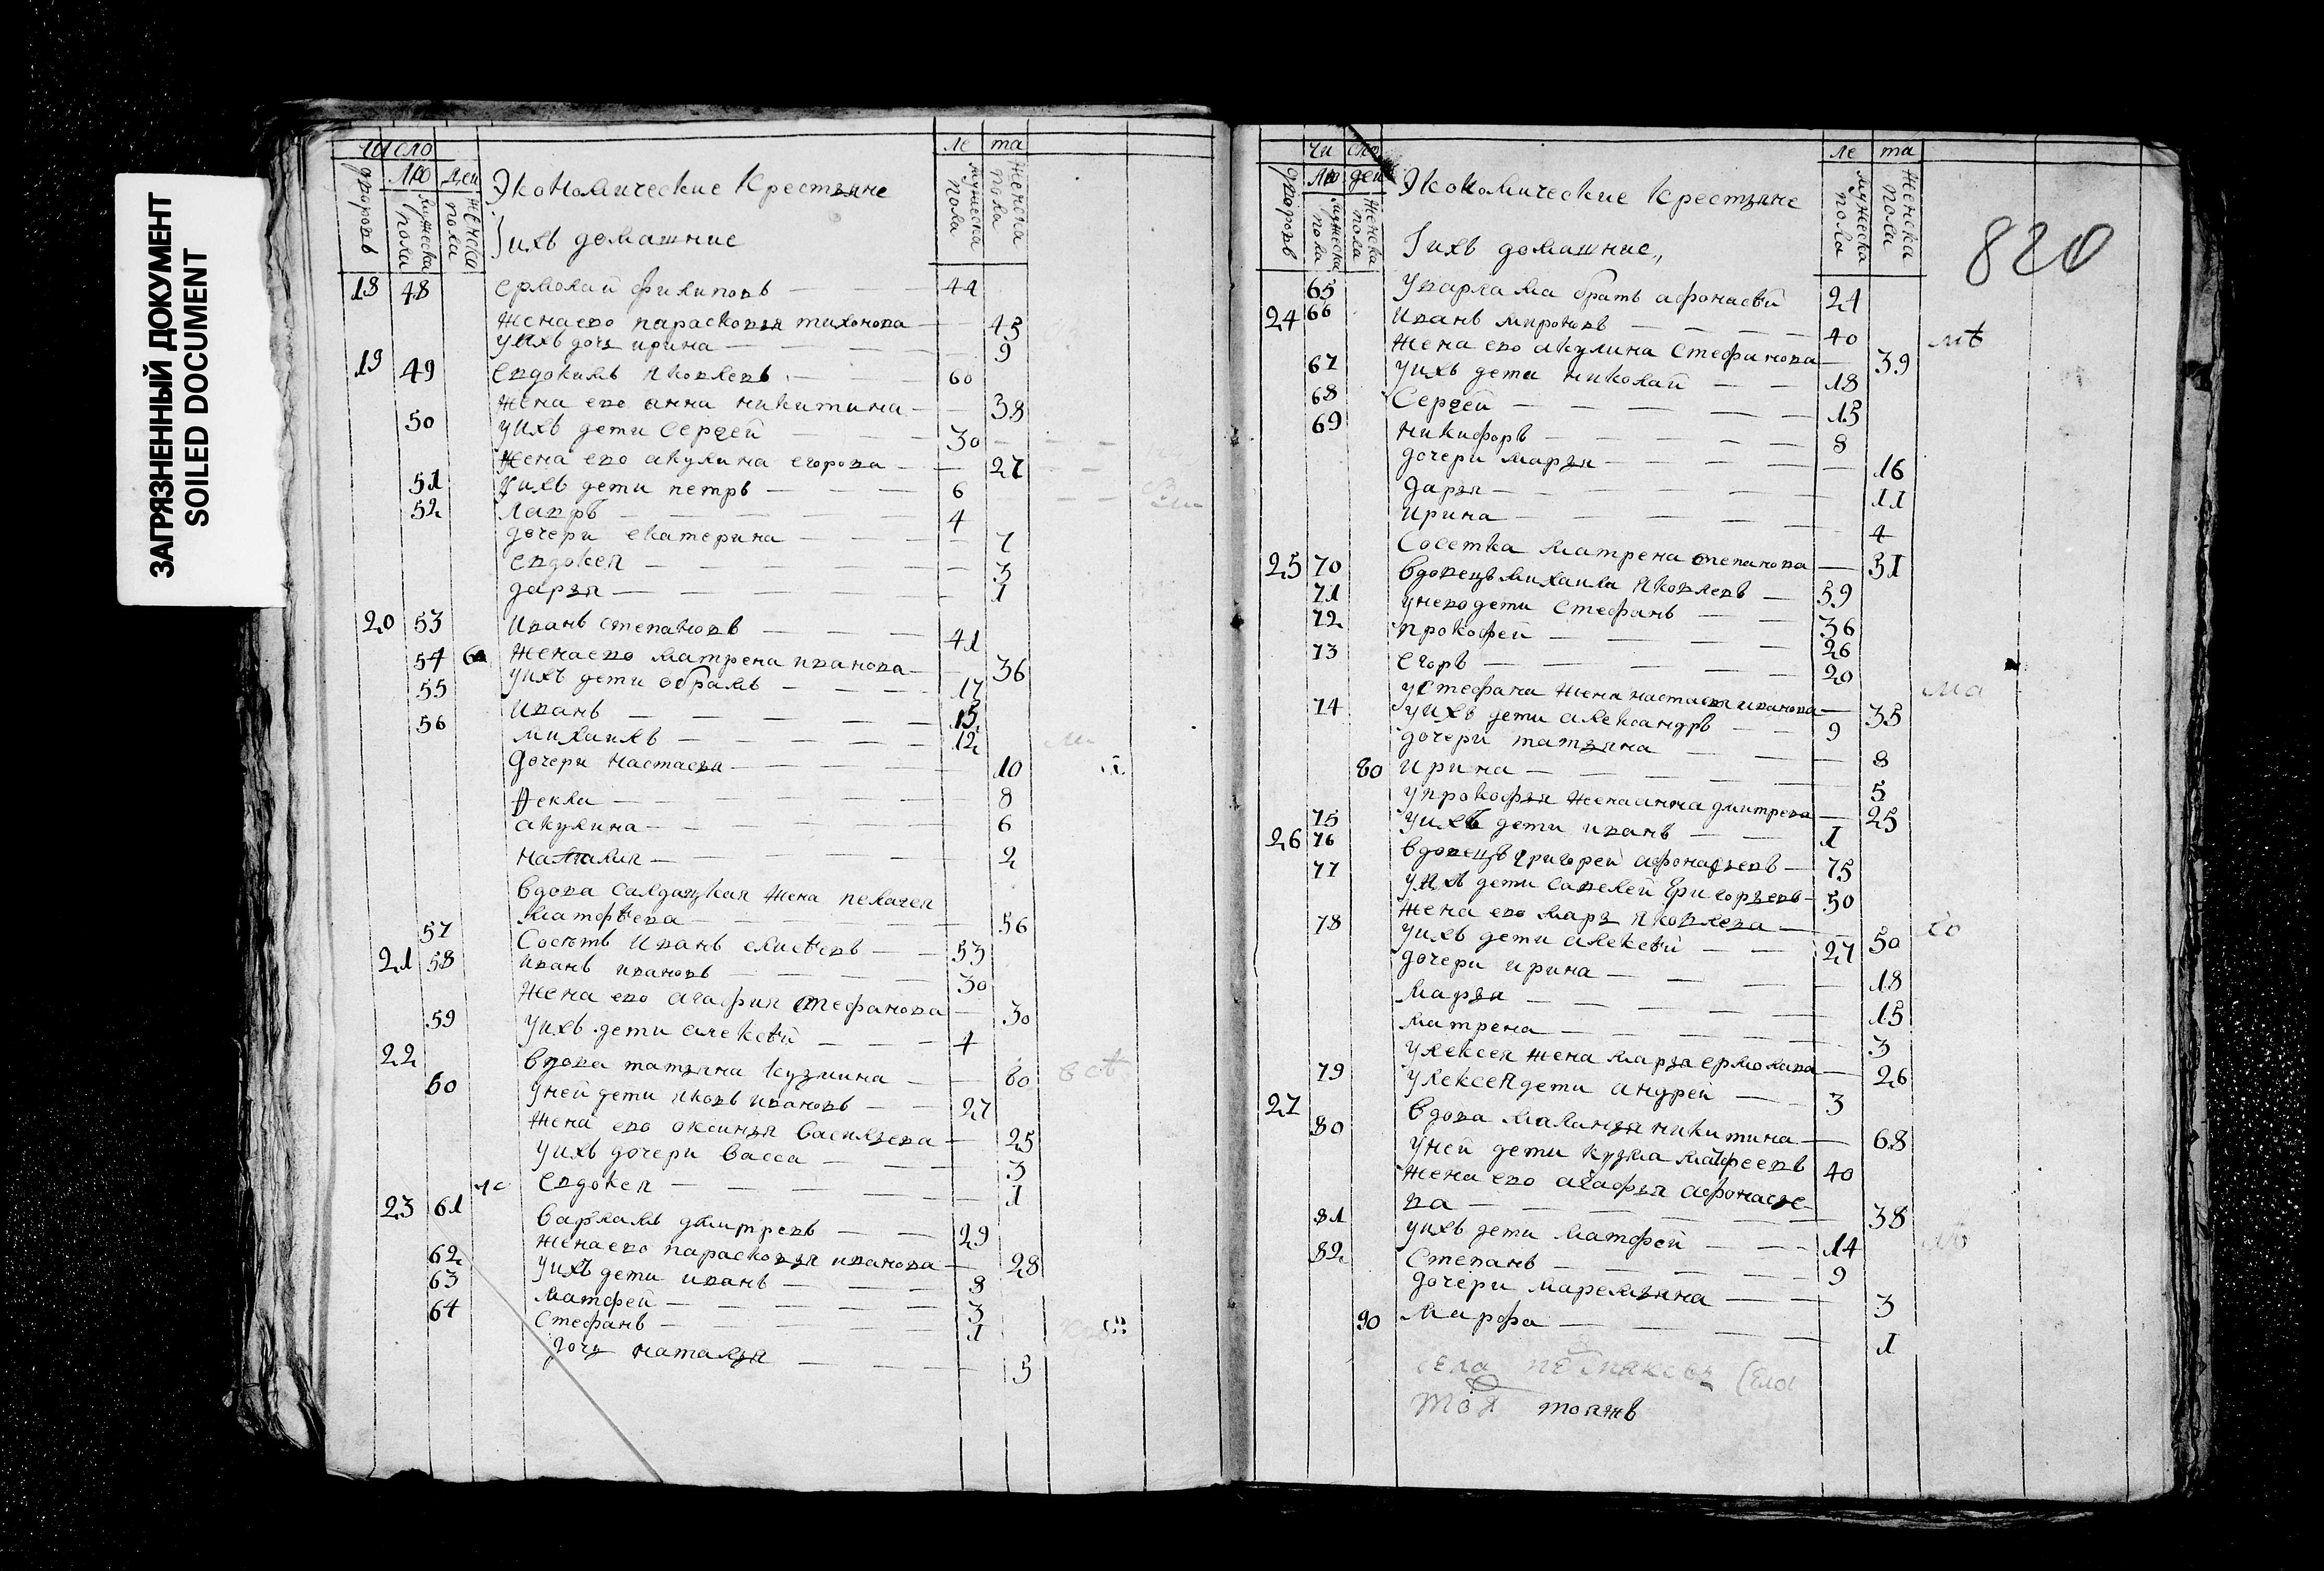 ЗАГРЯЗНЕННЫЙ ДОКУМЕНТ
SOILED DOCUMENT
число
лю дей
дворовъ
мужеска пола
женска пола
Экономические Крестьяне
Iихъ домашние
ле та
мужеска пола
женска пола
18 48 Ермолай филиповъ 44
жена ево парасковья тихонова 43
у ихъ дочь ирина 9
19 49 Евдокимъ яковлевъ 60
жена ево анна никитина 38
50 у ихъ дети Сергей 30
жена ево акулина егорова 27
51 у ихъ дети петръ 6
52 лавръ 4
дочери екатерина 7
Евдокея 3
дарья 1
20 53 иванъ степановъ 41
жена ево матрена иванова 36
54 60 у ихъ дети абрамъ 17
55 иванъ 15
56 михаилъ 12
дочери настасья 10
Fекла 8
акулина 6
наталия 2
вдова салдацкая жена пелагея
матфѣева 56
57 Сосѣтъ иванъ елисѣевъ 53
21 58 иванъ ивановъ 30
жена ево агафия стефанова 30
59 у ихъ дети алексѣй 4
22 вдова татьяна кузмина 60
60 у ней дети яковъ ивановъ 27
жена ево оксинья васильева 25
у ихъ дочери васса 3
Евдокея 1
23 61 варламъ дмитревъ 29
жена ево парасковья иванова 28
62 у ихъ дети иванъ 8
63 матфей 3
64 Стефанъ 1
дочь наталья 5
чи сло
лю дей
дворовъ
мужеска пола
женска пола
Экономические Крестьяне
Iихъ домашние,,
ле та
мужеска пола
женска пола
820
65 у варлама братъ афонасѣй 24
24 66 иванъ мироновъ 40
жена ево акулина стефанова 39
67 у ихъ дети николай 18
68 Сергей 15
69 никифоръ 8
дочери марья 16
дарья 11
ирина 4
Сосетка матрена степанова 51
25 70 вдовецъ михаила яковлевъ 59
71 у нево дети стефанъ 36
72 прокофей 26
73 егоръ 20
у стефана жена настасья иванова 35
74 у ихъ дети александръ 9
дочери татьяна 8
80 ирина 5
у прокофья жена анна дмитрева 25
75 у ихъ дети иванъ 1
26 76 вдовецъ григорей афонасьевъ 75
77 у ихъ дети савелей григорьевъ 50
жена ево марья яковлева 50
78 у ихъ дети алексѣй 27
дочери ирина 18
марья 15
матрена 3
у алексея жена марья ермолаева 26
79 у алексея дети андрей 3
27 вдова маланья никитина 68
80 у ней дети кузма матфеевъ 40
жена ево агафья афонасье
ва 38
81 у ихъ дети матфей 14
82 Степанъ 9
дочери маремьяна 3
90 марфа 1
села
той тоажъ